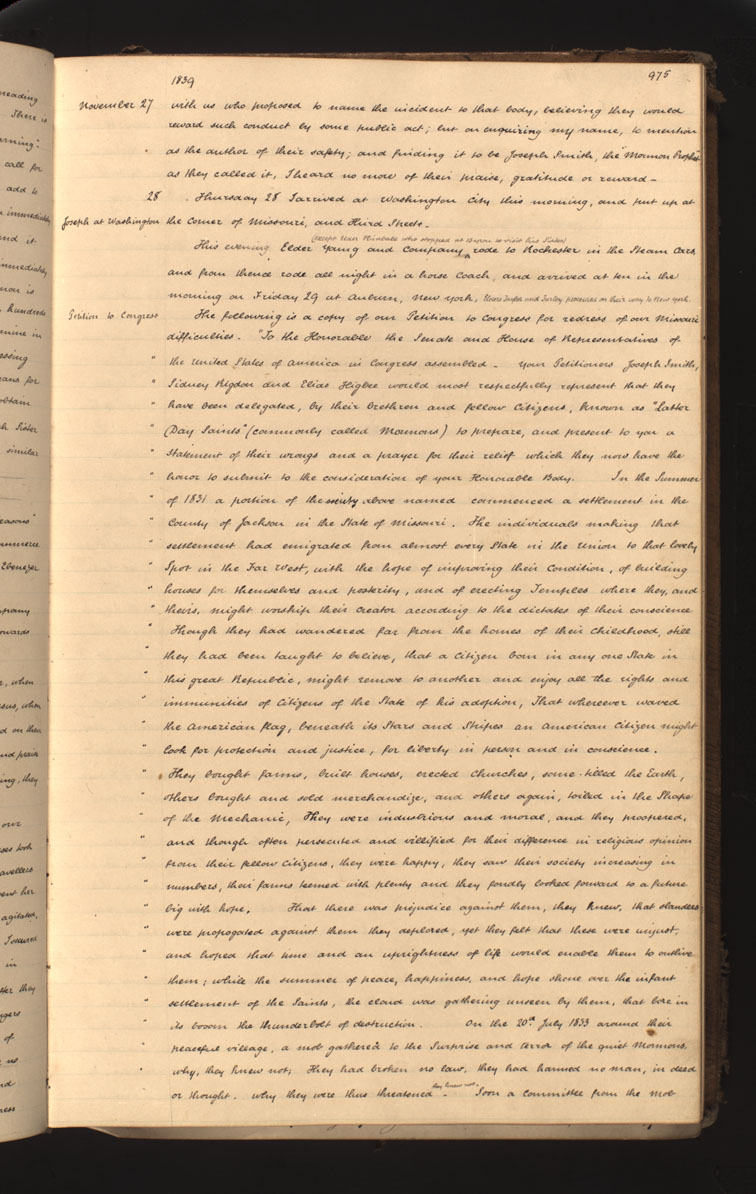 1839
975
November 27 with us who proposed to name the incident to that body, believing they would
reward such conduct by some public act; but on enquiring my name, to mention
" as the author of their safety; and finding it to be Joseph Smith, the "Mormon Prophet"
as they called it, I heard no more of their praise, gratitude or reward –
28 . Thursday 28 I arrived at Washington City this morning, and put up at
Joseph at Washington the corner of Missouri, and Third Streets –
(except Elder Kimball who stopped at Byron to visit his Sister)
This evening Elder Young and Company rode to Rochester in the Steam Cars
and from thence rode all night in a horse Coach, and arrived at ten in the
morning on Friday 29 at Auburn, New York, Elders Taylor and Turley proceeded on their way to New York.
Petition to Congress The following is a copy of our Petition to Congress for redress of our Missouri
difficulties. – "To the Honorable the Senate and House of Representatives of
" the United States of America in Congress assembled – Your Petitioners Joseph Smith,
" Sidney Rigdon and Elias Higbee would most respectfully represent that they
" have been delegated, by their brethren and fellow Citizens, known as "Latter
" Day Saints" (commonly called Mormons) to prepare, and present to you a
" Statement of their wrongs and a prayer for their relief which they now have the
" honor to submit to the consideration of your Honorable Body. In the Summer
" of 1831 a portion of the above named commenced a settlement in the
" County of Jackson in the State of Missouri. The individuals making that
" settlement had emigrated from almost every State in the Union to that lovely
" Spot in the Far West, with the hope of improving their Condition, of building
" houses for themselves and posterity, and of erecting Temples where they, and
" theirs, might worship their Creator according to the dictates of their conscience
" Though they had wandered far from the homes of their childhood, still
" they had been taught to believe, that a Citizen born in any one State in
" this great Republic, might remove to another and enjoy all the rights and
" immunities of Citizens of the State of his adoption, That wherever waved
" the American flag, beneath its Stars and Stripes an American Citizen might
" look for protection and justice, for liberty in person and in conscience.
" They bought farms, built houses, erected churches, some tilled the Earth,
" others bought and sold merchandize, and others again, toiled in the Shape
" of the Mechanic, They were industrious and moral, and they prospered,
" and though often persecuted and villified for their difference in religious opinion
" from their fellow Citizens, they were happy, they saw their society increasing in
" numbers, their farms teemed with plenty and they fondly looked forward to a future
" big with hope. That there was prejudice against them, they knew, that slanders
" were propogated against them they deplored, yet they felt that these were unjust,
" and hoped that time and an uprightness of life would enable them to outlive
" them; while the summer of peace, happiness, and hope shone over the infant
" settlement of the Saints, the cloud was gathering unseen by them, that bore in
" its bosom the thunderbolt of destruction. On the 20th July 1833 around their
" peaceful village, a mob gathered to the Surprise and terror of the quiet Mormons,
" why, they knew not; They had broken no law, they had harmed no man, in deed
they knew not.
" or thought. why they were thus threatened – Soon a Committee from the mob